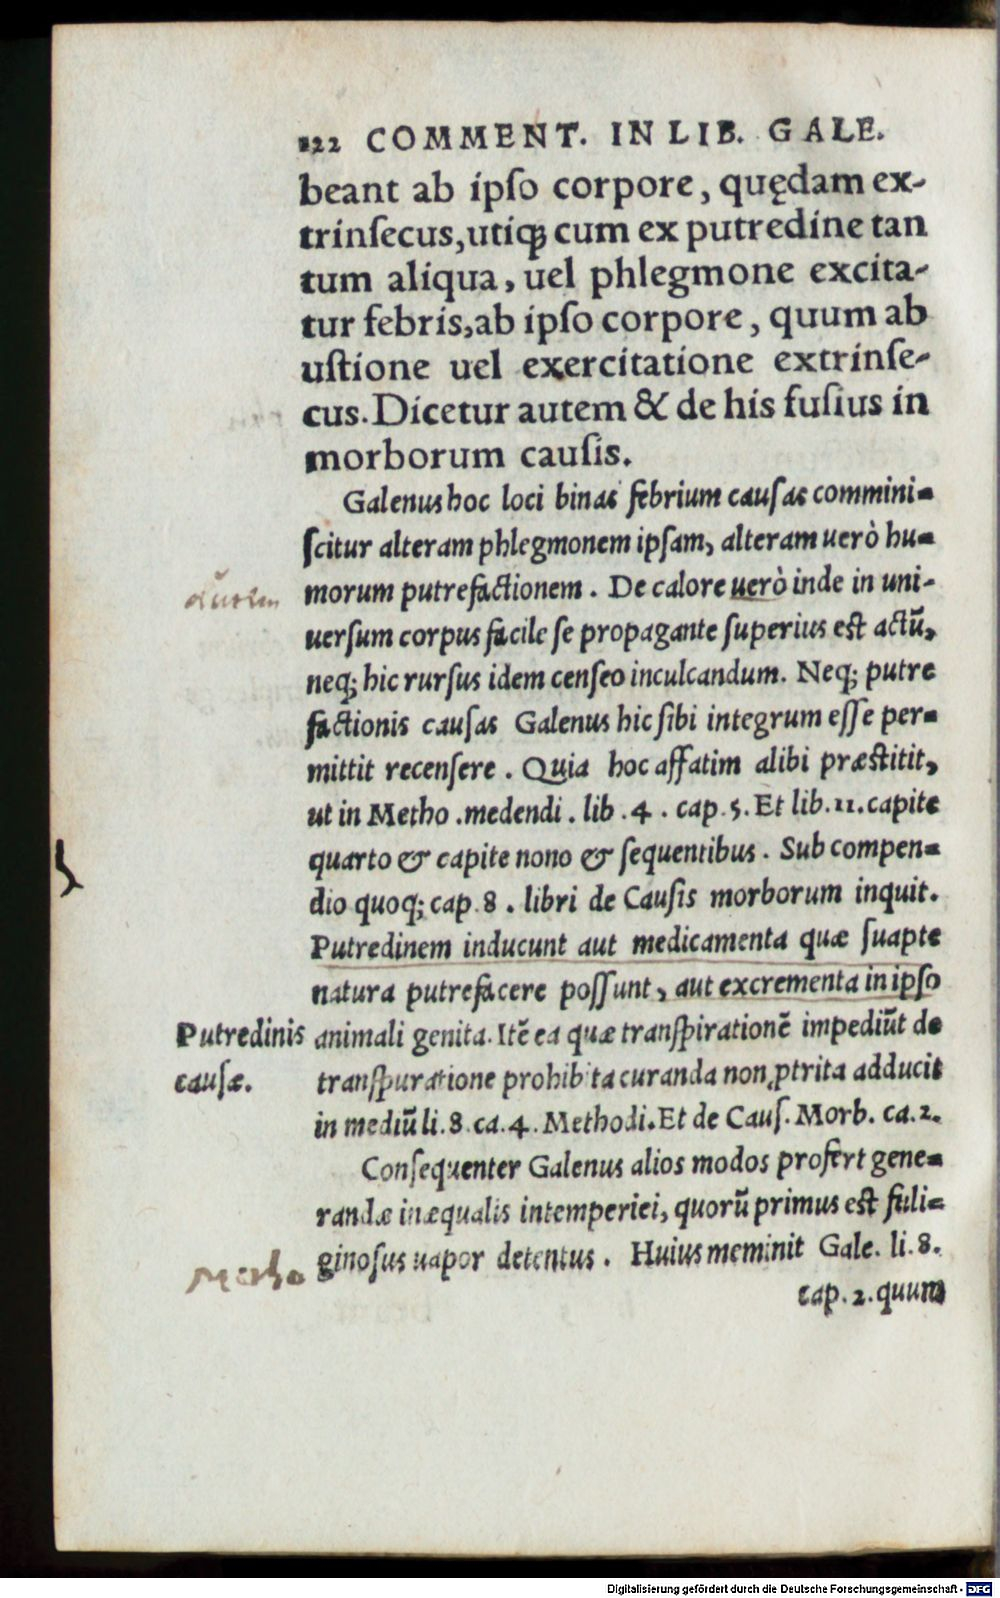 122 COMMENT. IN LIB. GALE.
beant ab ipſo corpore, quędam ex-
trinſecus, utiq; cum ex putredine tan
tum aliqua, uel phlegmone excita-
tur febris, ab ipſo corpore, quum ab
uſtione uel exercitatione extrinſe-
cus. Dicetur autem & de his fuſius in
morborum cauſis.
Galenus hoc loci binas febrium cauſas commini-
ſcitur alteram phlegmonem ipſam, alteram uerò hu-
morum putrefactionem. De calore uerò inde in uni-
uerſum corpus facile ſe propagante ſuperius eſt actũ,
neq; hic rurſus idem cenſeo inculcandum. Neq; putre
factionis cauſas Galenus hic ſibi integrum eſſe per-
mittit recenſere. Quia hoc affatim alibi præſtitit,
ut in Metho. medendi. lib. 4. cap. 5. Et lib. 11. capite
quarto & capite nono & ſequentibus. Sub compen-
dio quoq; cap. 8. libri de Cauſis morborum inquit.
Putredinem inducunt aut medicamenta quæ ſuapte
natura putrefacere poſſunt, aut excrementa in ipſo
Putredinis cauſæ.
animali genita. Itẽ ea quæ tranſpirationẽ impediũt de
tranſpuratione prohibita curanda non ꝓtrita adducit
in mediũ li. 8. ca. 4. Methodi. Et de Cauſ. Morb. ca. 2.
Conſequenter Galenus alios modos profert gene-
randæ inæqualis intemperiei, quorũ primus eſt fuli-
ginoſus uapor detentus. Huius meminit Gale. li. 8.
Metho
cap. 2. quum
Digitalisierung gefördert durch die Deutsche Forschungsgemeinschaft - DFG